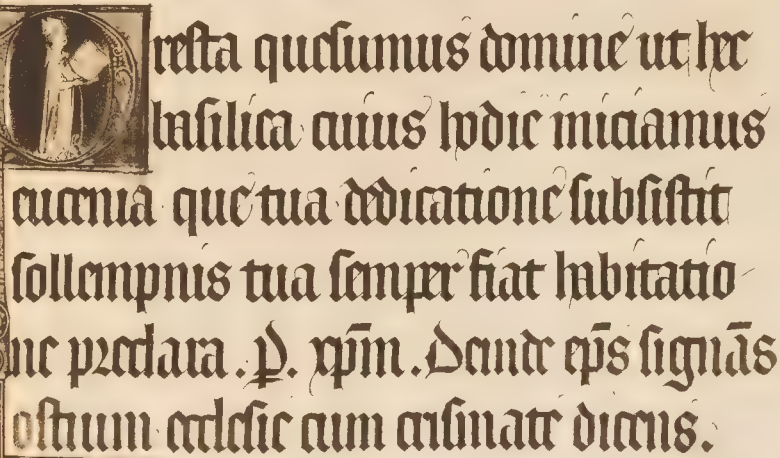 Presta quesumus domine ut hec
basilica cuius hodie iniciamus
encenia que tua dedicatione subsistit
sollempnis tua semper fiat habitatio
ne preclara . ꝑ. xp̄m . Deinde ep̄s signās
ostium ecclesie cum crismate dicens.